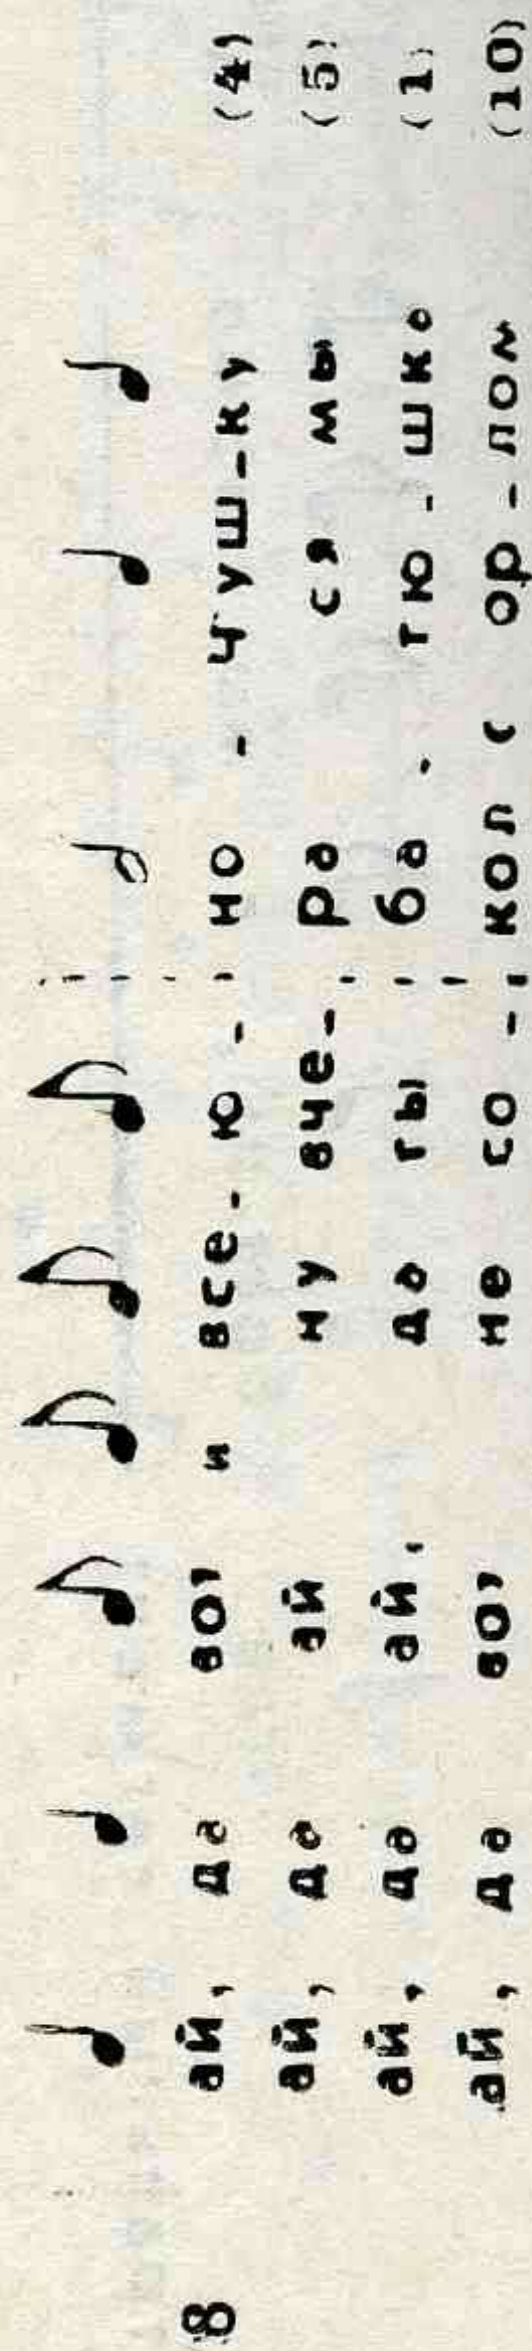 8 ай, да вот и все- ю - но - чуш-ку (4)
ай, да ай ну вче- ра ся мы (5)
ай, да ай, да ты ба - тю - шко (1)
ай, да вот не со - кол с ор - лом (10)